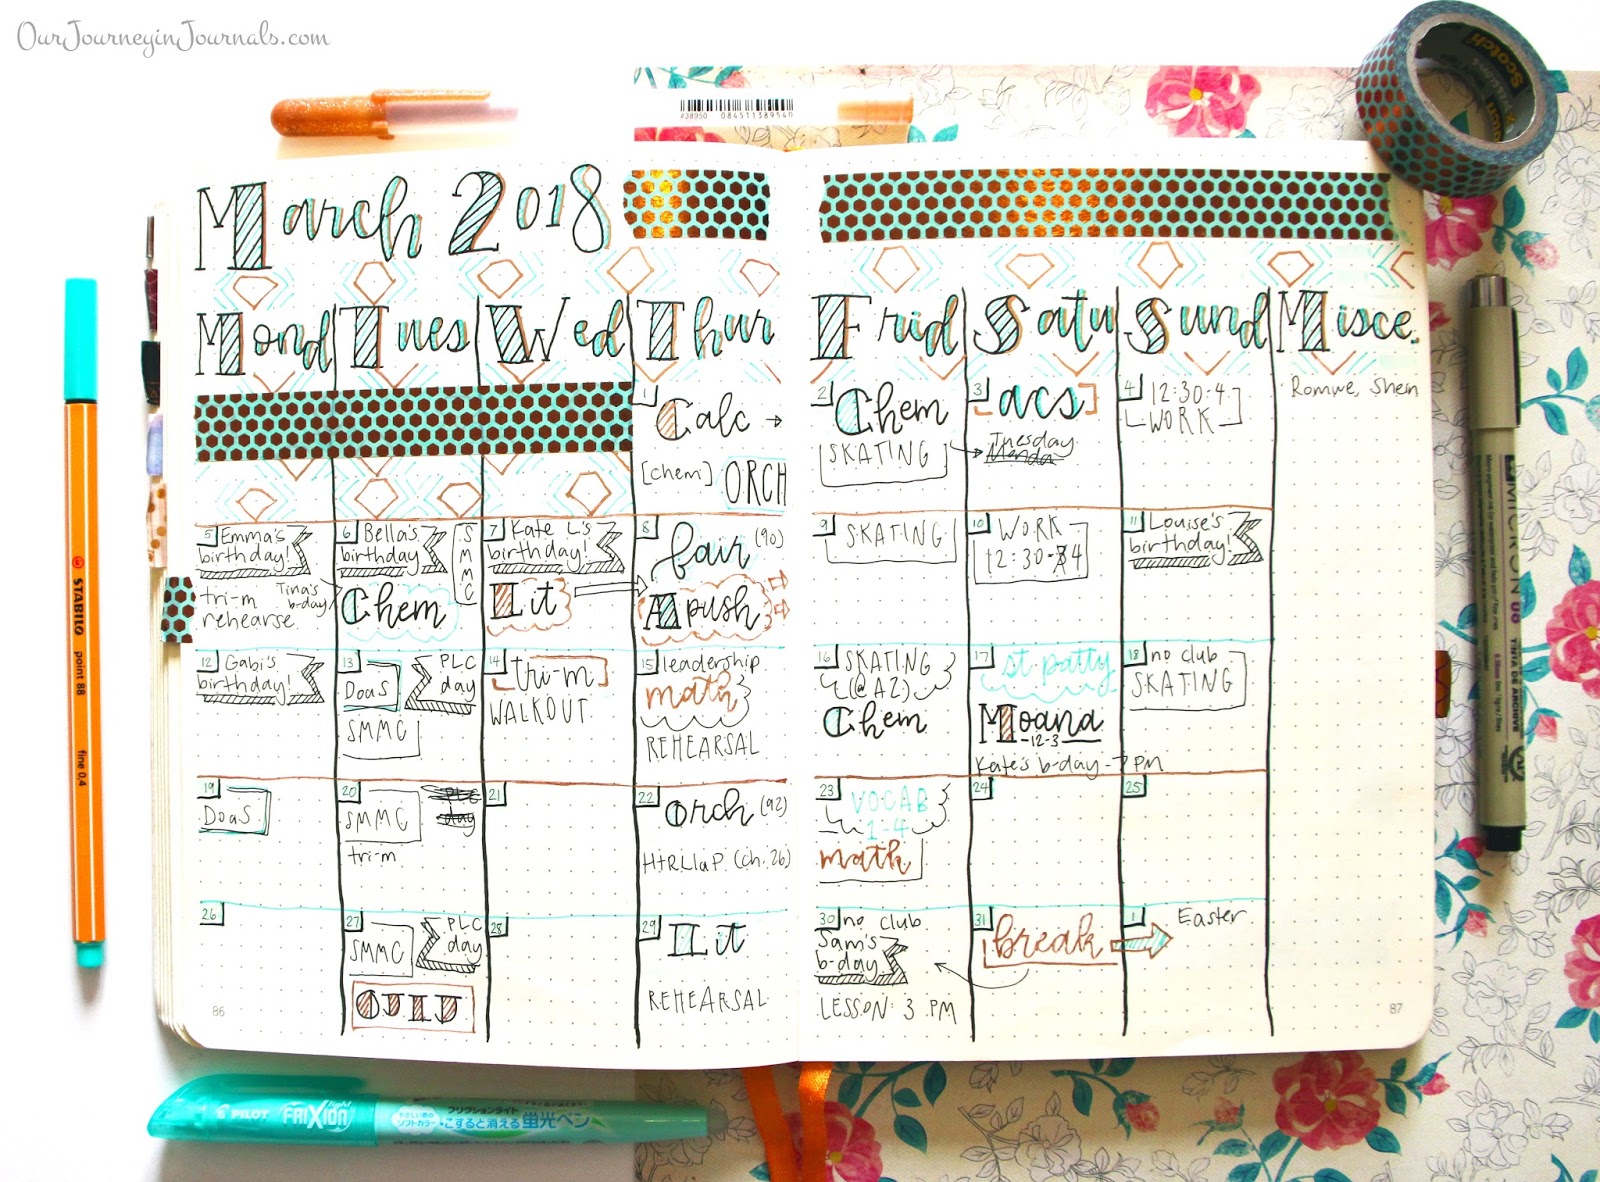 OurJourneyinJournals.com
#38950 084511389540
Scotch
March 2018
Mond Tues Wed Thur Frid Satu Sund Misce.
1
Calc →
[chem] ORCH
2
Chem
SKATING
3
acs
Tuesday
4
12:30-4
WORK
Romwe, Shein
5
Emma's
birthday!
tri-m
rehearse
6
Bella's
birthday
SMMC
Tina's
b-day
Chem
7
Kate L's
birthday!
Lit
8
fair (90)
Apush
9
SKATING
10
WORK
12:30-4
11
Louise's
birthday!
12
Gabi's
birthday!
13
DoaS
PLC
day
SMMC
14
tri-m
WALKOUT
15
leadership
math
REHEARSAL
16
SKATING
(@AZ)
Chem
17
st. patty
Moana
-12-3
Kate's b-day - 7 PM
18
no club
SKATING
19
DoaS
20
SMMC
PLC
day
tri-m
21
22
Orch (92)
HtRLlaP (ch. 26)
23
VOCAB
1-4
math
24
25
26
27
SMMC
PLC
day
OJIJ
28
29
Lit
REHEARSAL
30
no club
Sam's
b-day
LESSON: 3 PM
31
break
1
Easter
86
87
STABILO point 88 fine 0.4
MICRON 08
PILOT FRIXION light
フリクションライト
こすると消える蛍光ペン